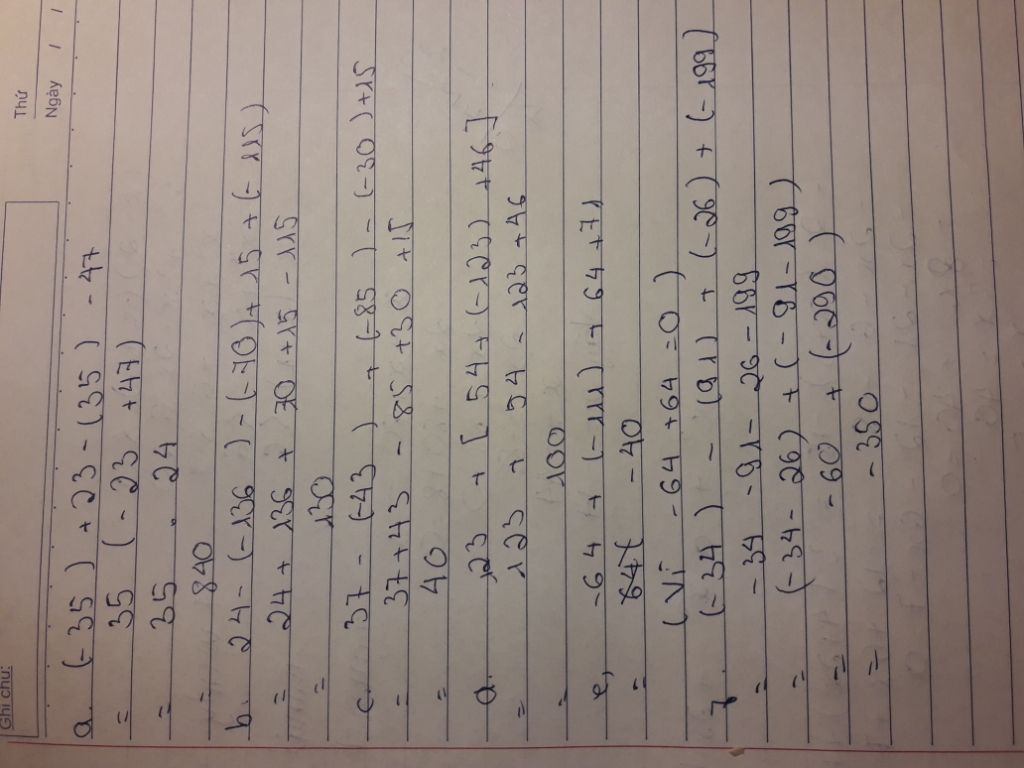 Ghi chú:
Thứ
Ngày / /
a. (-35) + 23 - (35) - 47
= 35 (- 23 + 47)
= 35 . 24
= 840
b. 24 - (-136) - (-70) + 15 + (-115)
= 24 + 136 + 70 + 15 - 115
= 130
c. 37 - (-43) + (-85) - (-30) + 15
= 37 + 43 - 85 + 30 + 15
= 40
d. 123 + [54 + (-123) + 46]
= 123 + 54 - 123 + 46
= 100
e, -64 + (-111) + 64 + 71
= - 40
(Vì -64 + 64 = 0)
(-34) - (91) + (-26) + (-199)
= -34 - 91 - 26 - 199
= (-34 - 26) + (-91 - 199)
= -60 + (-290)
= -350